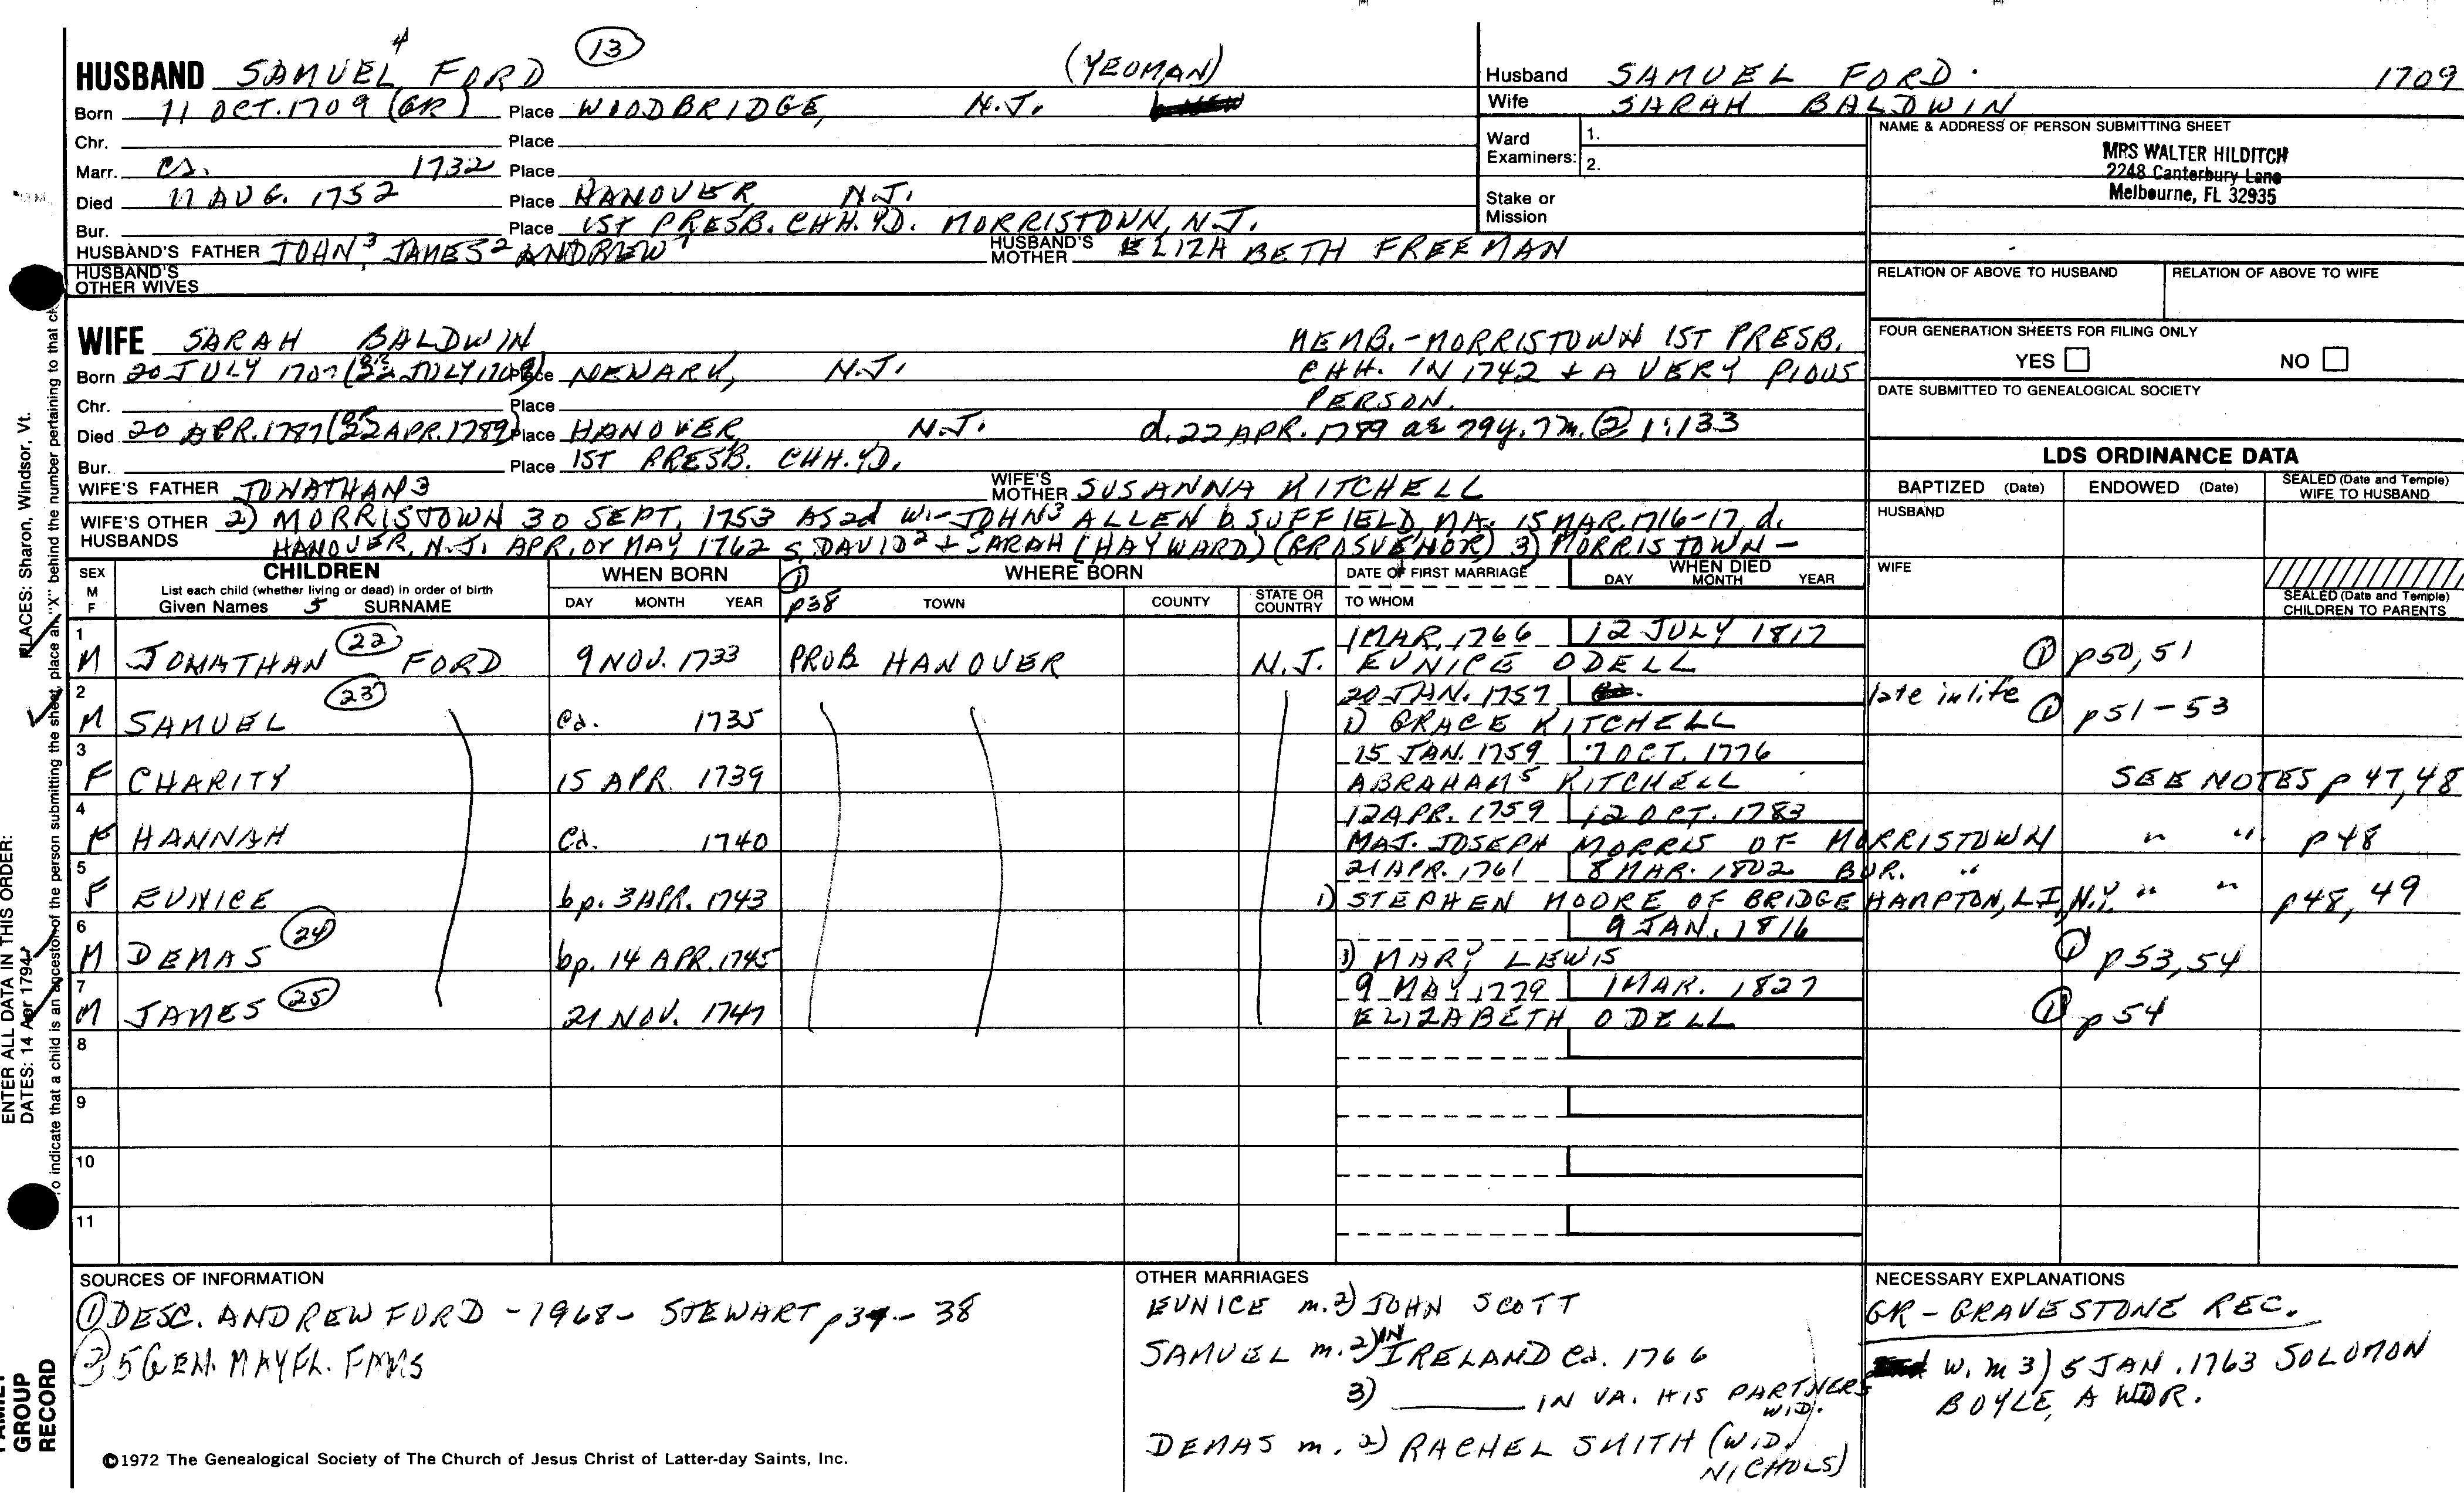 4
13
HUSBAND SAMUEL FORD (YEOMAN)
Born 11 OCT. 1709 (GR) Place WOODBRIDGE, N.J.
Chr. Place
Marr. ca. 1732 Place
Died 11 AUG. 1752 Place HANOVER N.J.
Bur. Place 1ST PRESB. CHH. YD. MORRISTOWN, N.J.
HUSBAND'S FATHER JOHN3, JAMES2 ANDREW1 HUSBAND'S MOTHER ELIZABETH FREEMAN
HUSBAND'S OTHER WIVES
Husband SAMUEL FORD. 1709
Wife SARAH BALDWIN
Ward Examiners: 1.
2.
Stake or Mission
NAME & ADDRESS OF PERSON SUBMITTING SHEET
MRS WALTER HILDITCH
2248 Canterbury Lane
Melbourne, FL 32935
RELATION OF ABOVE TO HUSBAND RELATION OF ABOVE TO WIFE
FOUR GENERATION SHEETS FOR FILING ONLY
YES NO
DATE SUBMITTED TO GENEALOGICAL SOCIETY
WIFE SARAH BALDWIN MEMB.-MORRISTOWN 1ST PRESB.
Born 20 JULY 1707 (OR 22 JULY 1709) Place NEWARK, N.J. CHH. IN 1742 + A VERY PIOUS
Chr. Place PERSON.
Died 20 APR. 1787 (OR 22 APR. 1789) Place HANOVER N.J. d. 22 APR. 1789 ae 79y. 7m. ② 1:133
Bur. Place 1ST PRESB. CHH. YD.
WIFE'S FATHER JONATHAN3 WIFE'S MOTHER SUSANNA KITCHELL
WIFE'S OTHER HUSBANDS 2) MORRISTOWN 30 SEPT. 1753 AS 2d W.- JOHN3 ALLEN b. SUFFIELD, MA. 15 MAR. 1716-17, d.
HANOVER, N.J. APR. OR MAY 1762 s. DAVID2 + SARAH (HAYWARD) (GROSVENOR) 3) MORRISTOWN -
LDS ORDINANCE DATA
BAPTIZED (Date) ENDOWED (Date) SEALED (Date and Temple) WIFE TO HUSBAND
HUSBAND
WIFE
SEALED (Date and Temple) CHILDREN TO PARENTS
SEX M F
CHILDREN
List each child (whether living or dead) in order of birth
Given Names 5 SURNAME
WHEN BORN
DAY MONTH YEAR
① p38
WHERE BORN
TOWN COUNTY STATE OR COUNTRY
DATE OF FIRST MARRIAGE
TO WHOM
WHEN DIED
DAY MONTH YEAR
1 1 MAR. 1766 12 JULY 1817
M JONATHAN 22 FORD 9 NOV. 1733 PROB HANOVER N.J. EUNICE ODELL ① p50, 51
2 23 20 JAN. 1757 late in life
M SAMUEL ca. 1735 1) GRACE KITCHELL ① p51-53
3 15 JAN. 1759 7 OCT. 1776
F CHARITY 15 APR. 1739 ABRAHAM5 KITCHELL SEE NOTES p 47, 48
4 12 APR. 1759 12 OCT. 1783
F HANNAH ca. 1740 MAJ. JOSEPH MORRIS OF MORRISTOWN " " p48
5 21 APR. 1761 8 MAR. 1802 BUR. "
F EUNICE bp. 3 APR. 1743 1) STEPHEN MOORE OF BRIDGEHAMPTON, L.I., N.Y. " " p48, 49
6 24 9 JAN. 1816
M DEMAS bp. 14 APR. 1745 1) MARY LEWIS ① p53, 54
7 25 9 MAY 1779 1 MAR. 1827
M JAMES 21 NOV. 1747 ELIZABETH ODELL ① p54
8
9
10
11
SOURCES OF INFORMATION
① DESC. ANDREW FORD - 1968 - STEWART p37-38
② 5 GEN. MAYFL. FAMS
©1972 The Genealogical Society of The Church of Jesus Christ of Latter-day Saints, Inc.
OTHER MARRIAGES
EUNICE m. 2) JOHN SCOTT
SAMUEL m. 2) IN IRELAND ca. 1766
3) IN VA. HIS PARTNERS WID.
DEMAS m. 2) RACHEL SMITH (WID. NICHOLS)
NECESSARY EXPLANATIONS
GR - GRAVESTONE REC.
W. m 3) 5 JAN. 1763 SOLOMON
BOYLE, A WDR.
PLACES: Sharon, Windsor, Vt.
ENTER ALL DATA IN THIS ORDER:
DATES: 14 Apr 1794
To indicate that a child is an ancestor of the person submitting the sheet, place an "X" behind the number pertaining to that
FAMILY GROUP RECORD